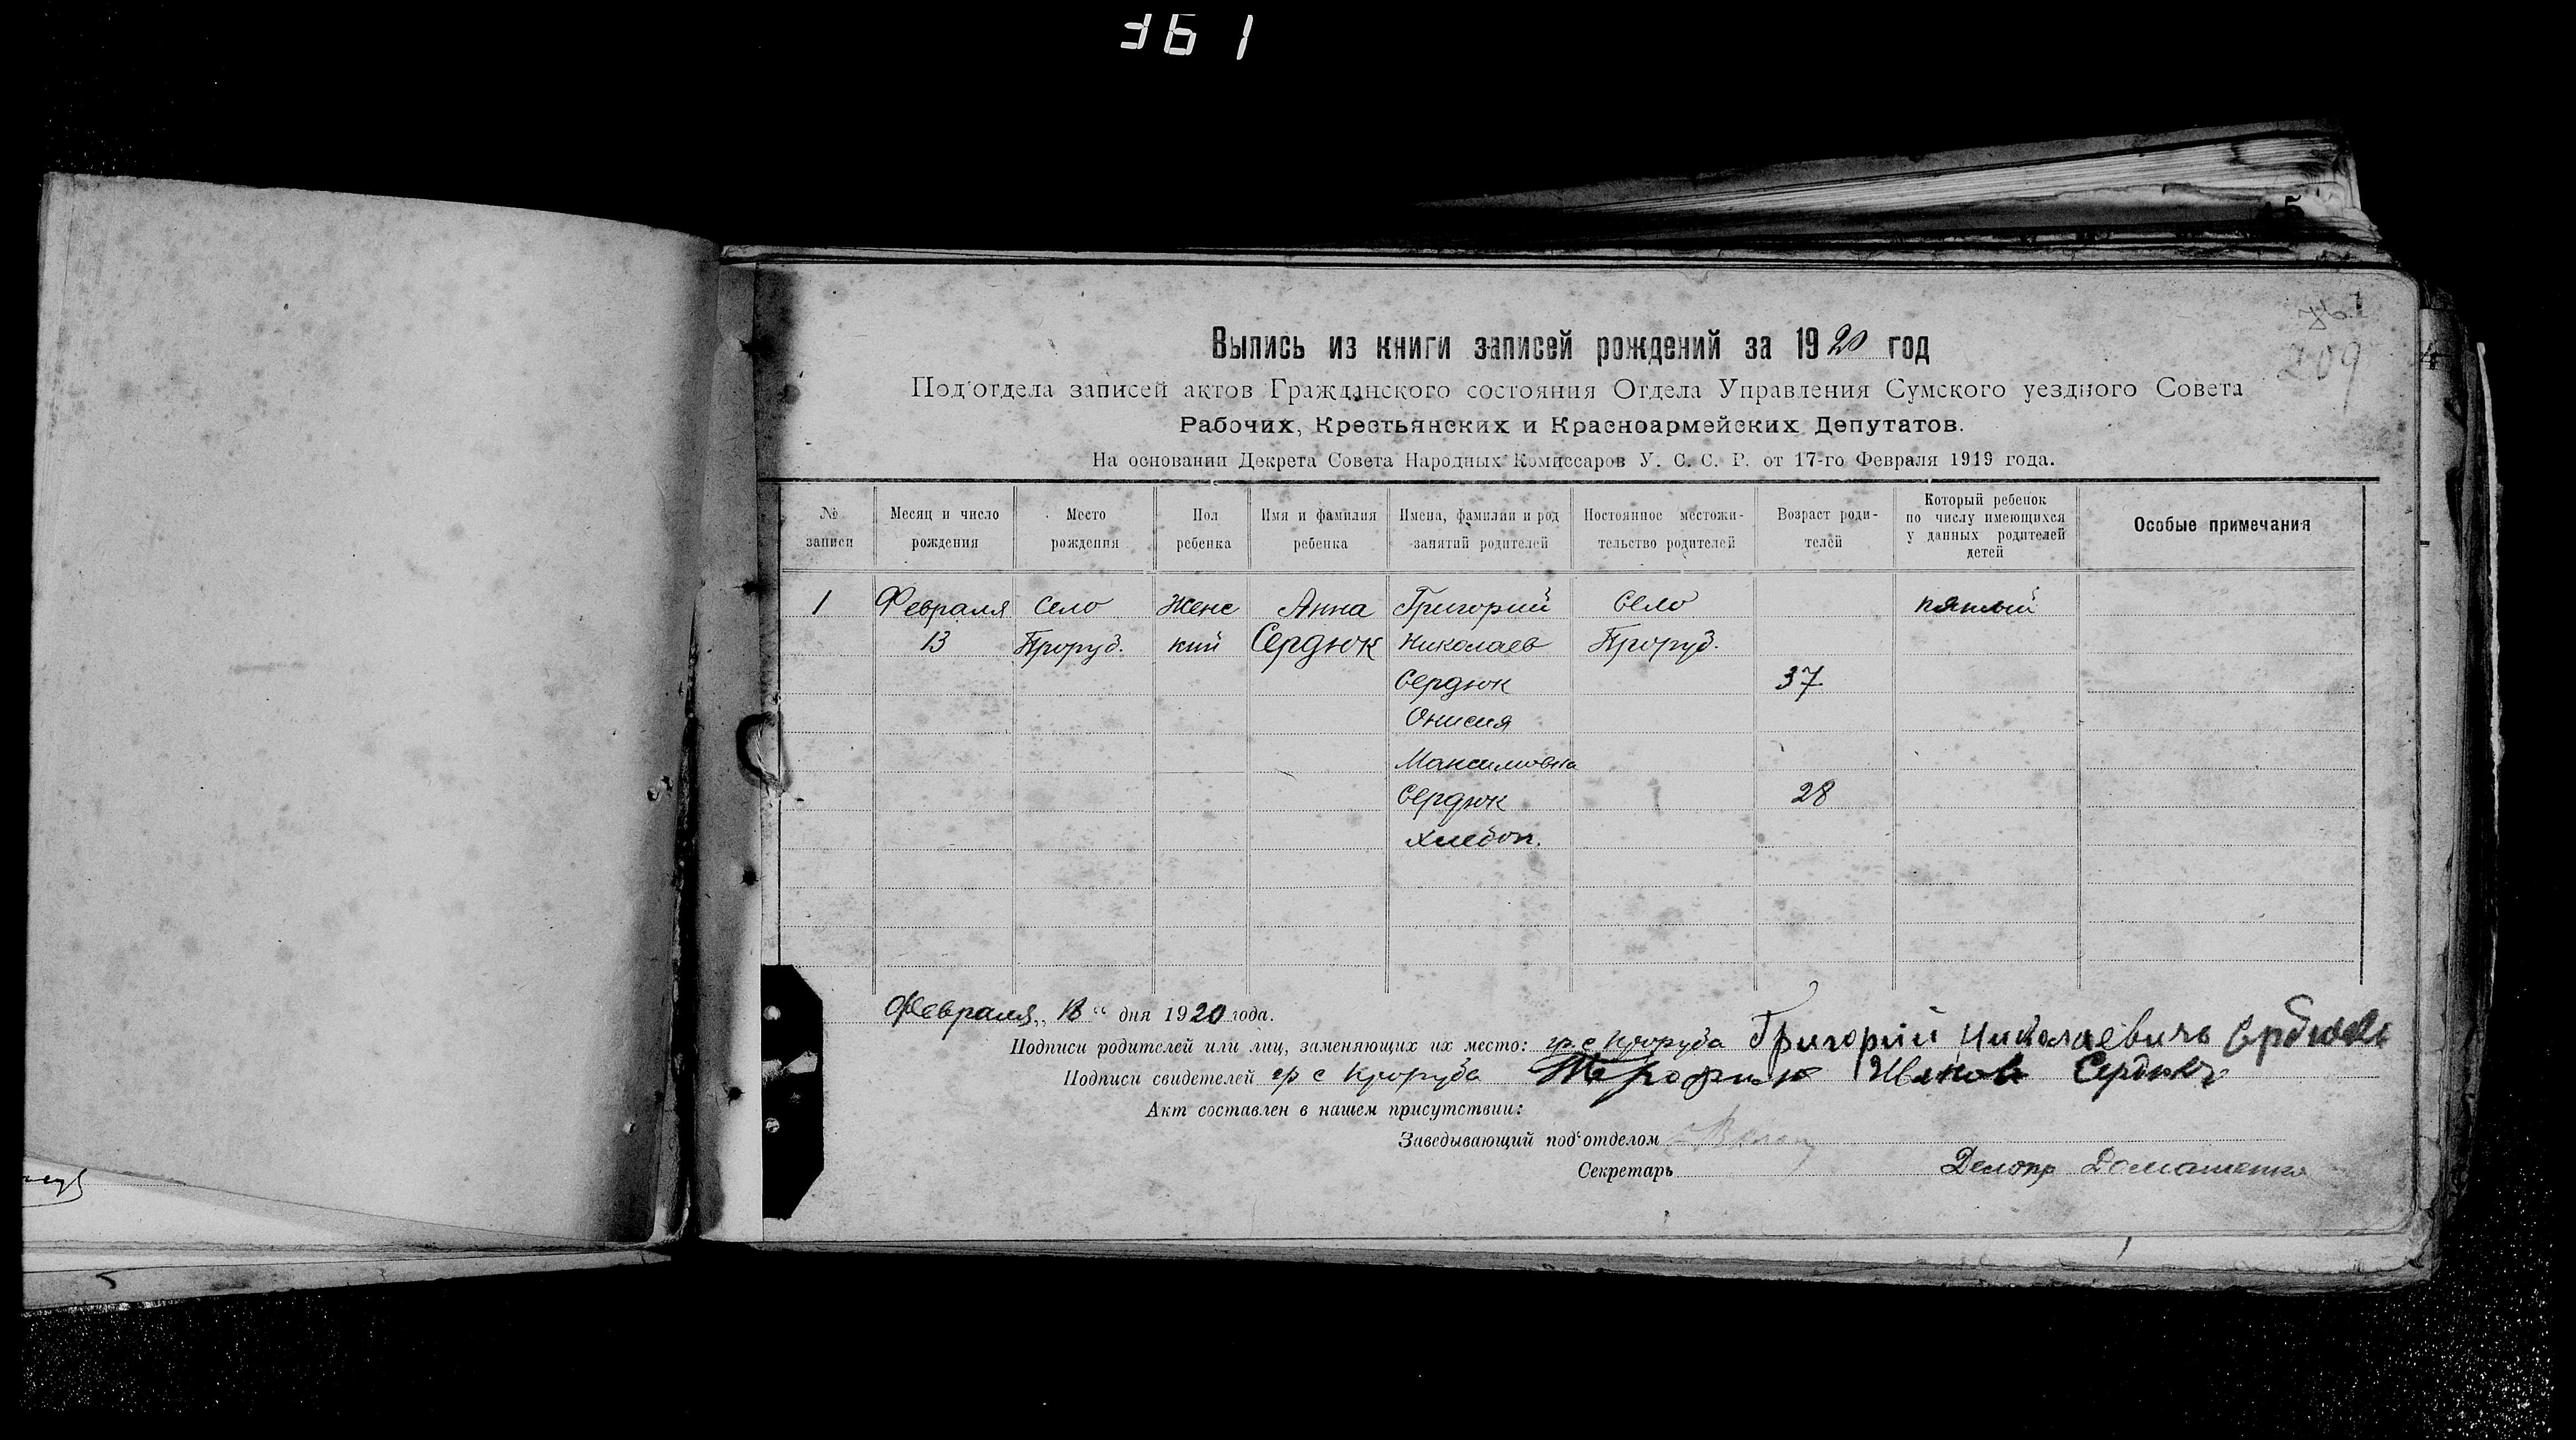 361
45
1
209
Выпись из книги записей рождений за 1920 год
Под'отдела записей актов Гражданского состояния Отдела Управления Сумского уездного Совета
Рабочих, Крестьянских и Красноармейских Депутатов.
На основании Декрета Совета Народных Комиссаров У. С. С. Р. от 17-го Февраля 1919 года.
№ записи
Месяц и число рождения
Место рождения
Пол ребенка
Имя и фамилия ребенка
Имена, фамилии и род занятий родителей
Постоянное местожительство родителей
Возраст родителей
Который ребенок по числу имеющихся у данных родителей детей
Особые примечания
1 Февраля село Женс Анна Григорий село пятый
13 Проруб. кий Сердюк Николаев Проруб.
Сердюк 37
Онисия
Максимовна
Сердюк 28
хлебоп.
Февраля „13“ дня 1920 года.
Подписи родителей или лиц, заменяющих их место: гр. с Проруба Григорий Николаевичь Сердюкъ
Подписи свидетелей гр с Проруба Сердюкъ
Акт составлен в нашем присутствии:
Заведывающий под'отделом
Секретарь Делопр Домашенко